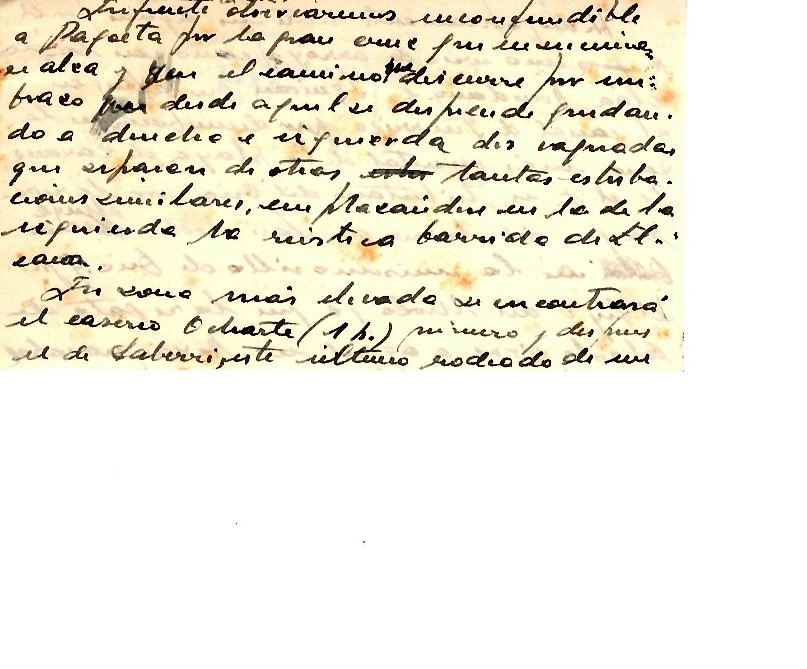 En frente observaremos inconfundible
a Pagoeta por la gran cruz que en su cima
se alza y que el camino que discurre por un
brazo que desde aquel se desprende quedan-
do a derecha e izquierda dos vaguadas
que separan de otras tantas estriba-
ciones similares, emplazándose en la de la
izquierda la rústica barriada de El-
cano.
En zona más elevada se encontrará
el caserío Ocharte (1 h.) primero y después
el de Saberri, este último rodeado de un